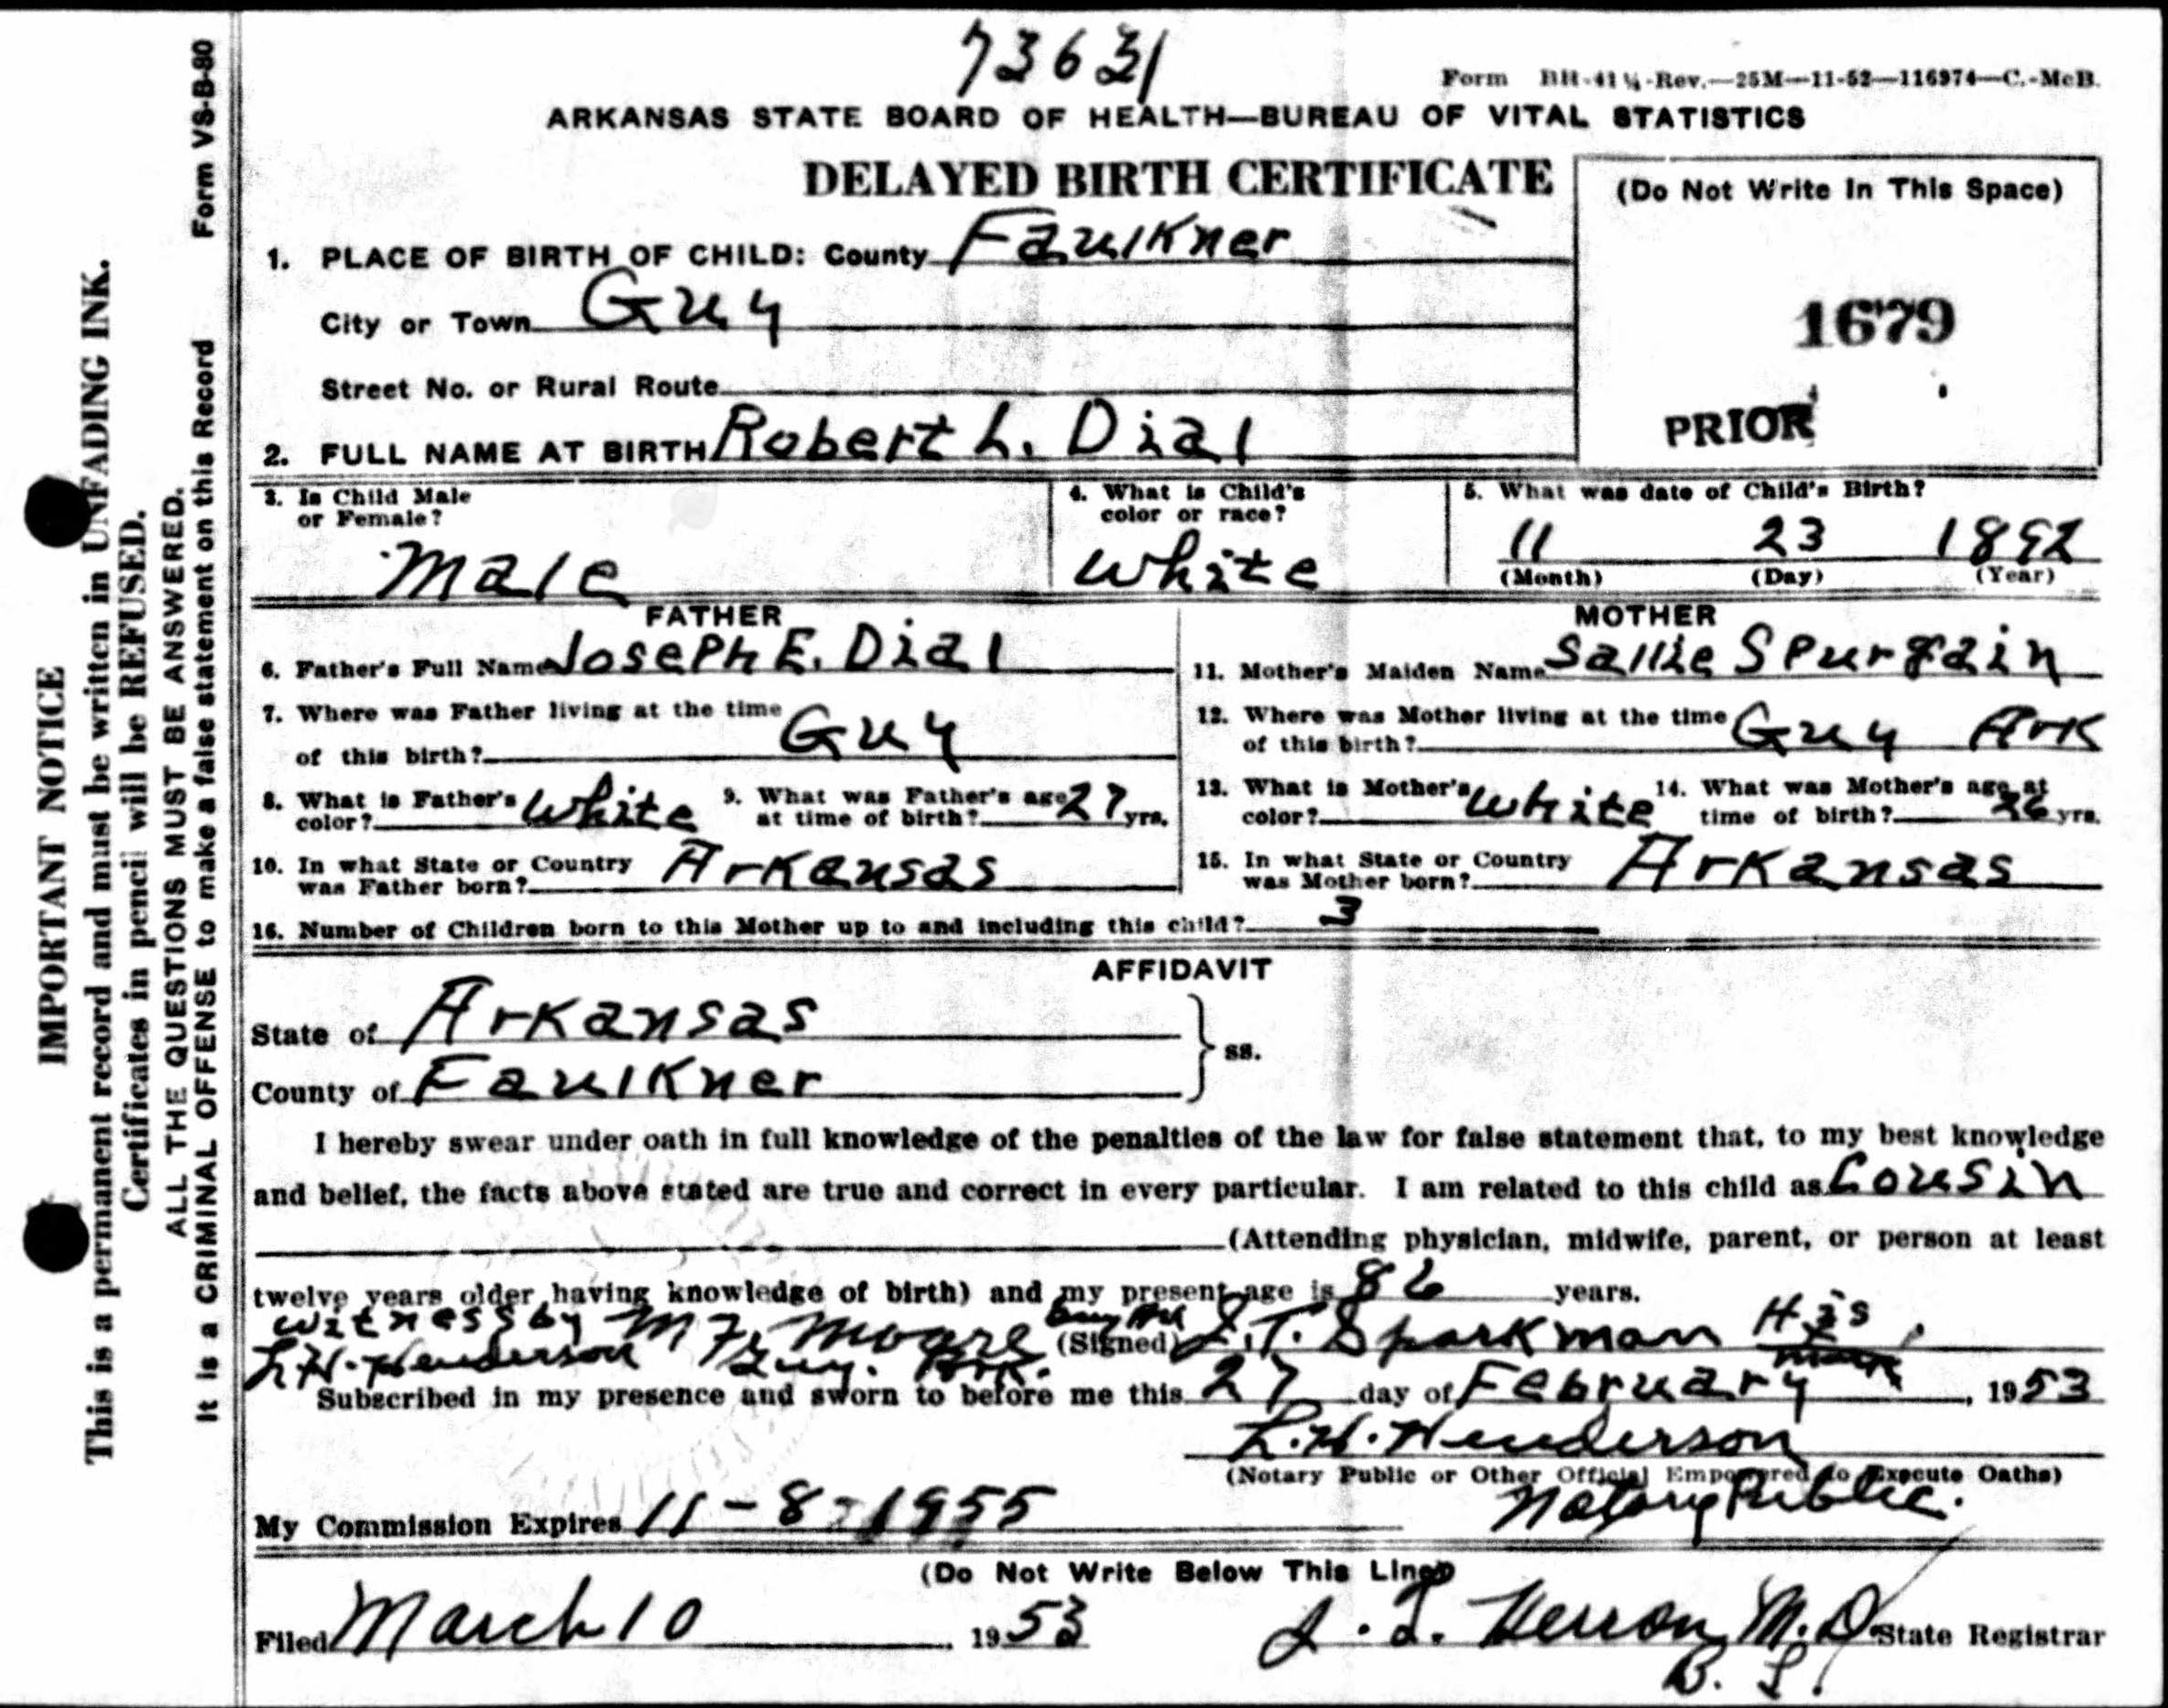 73631
Form BH-41¼-Rev.—25M—11-52—116974—C.-McB.
ARKANSAS STATE BOARD OF HEALTH—BUREAU OF VITAL STATISTICS
DELAYED BIRTH CERTIFICATE
(Do Not Write In This Space)
1679
PRIOR
1. PLACE OF BIRTH OF CHILD: County Faulkner
City or Town Guy
Street No. or Rural Route
2. FULL NAME AT BIRTH Robert L. Dial
3. Is Child Male or Female? Male
4. What is Child's color or race? White
5. What was date of Child's Birth?
11 23 1892
(Month) (Day) (Year)
FATHER
6. Father's Full Name Joseph E. Dial
7. Where was Father living at the time
of this birth? Guy
8. What is Father's color? White 9. What was Father's age at time of birth? 27 yrs.
10. In what State or Country was Father born? Arkansas
MOTHER
11. Mother's Maiden Name Sallie Spurgain
12. Where was Mother living at the time of this birth? Guy Ark
13. What is Mother's color? White 14. What was Mother's age at time of birth? 26 yrs.
15. In what State or Country was Mother born? Arkansas
16. Number of Children born to this Mother up to and including this child? 3
AFFIDAVIT
State of Arkansas
County of Faulkner
ss.
I hereby swear under oath in full knowledge of the penalties of the law for false statement that, to my best knowledge
and belief, the facts above stated are true and correct in every particular. I am related to this child as Cousin
(Attending physician, midwife, parent, or person at least
twelve years older having knowledge of birth) and my present age is 86 years.
Witness by M F. Moore Guy Ark (Signed) L.T. Sparkman His mark
L.H. Henderson Guy. Ark.
Subscribed in my presence and sworn to before me this 27 day of February, 1953
L.H. Henderson
(Notary Public or Other Official Empowered to Execute Oaths)
Notary Public.
My Commission Expires 11-8-1955
(Do Not Write Below This Line)
Filed March 10, 1953 J. T. Herron, M.D. State Registrar
B. L.
Form VS-B-80
IMPORTANT NOTICE
This is a permanent record and must be written in UNFADING INK.
Certificates in pencil will be REFUSED.
ALL THE QUESTIONS MUST BE ANSWERED.
It is a CRIMINAL OFFENSE to make a false statement on this Record